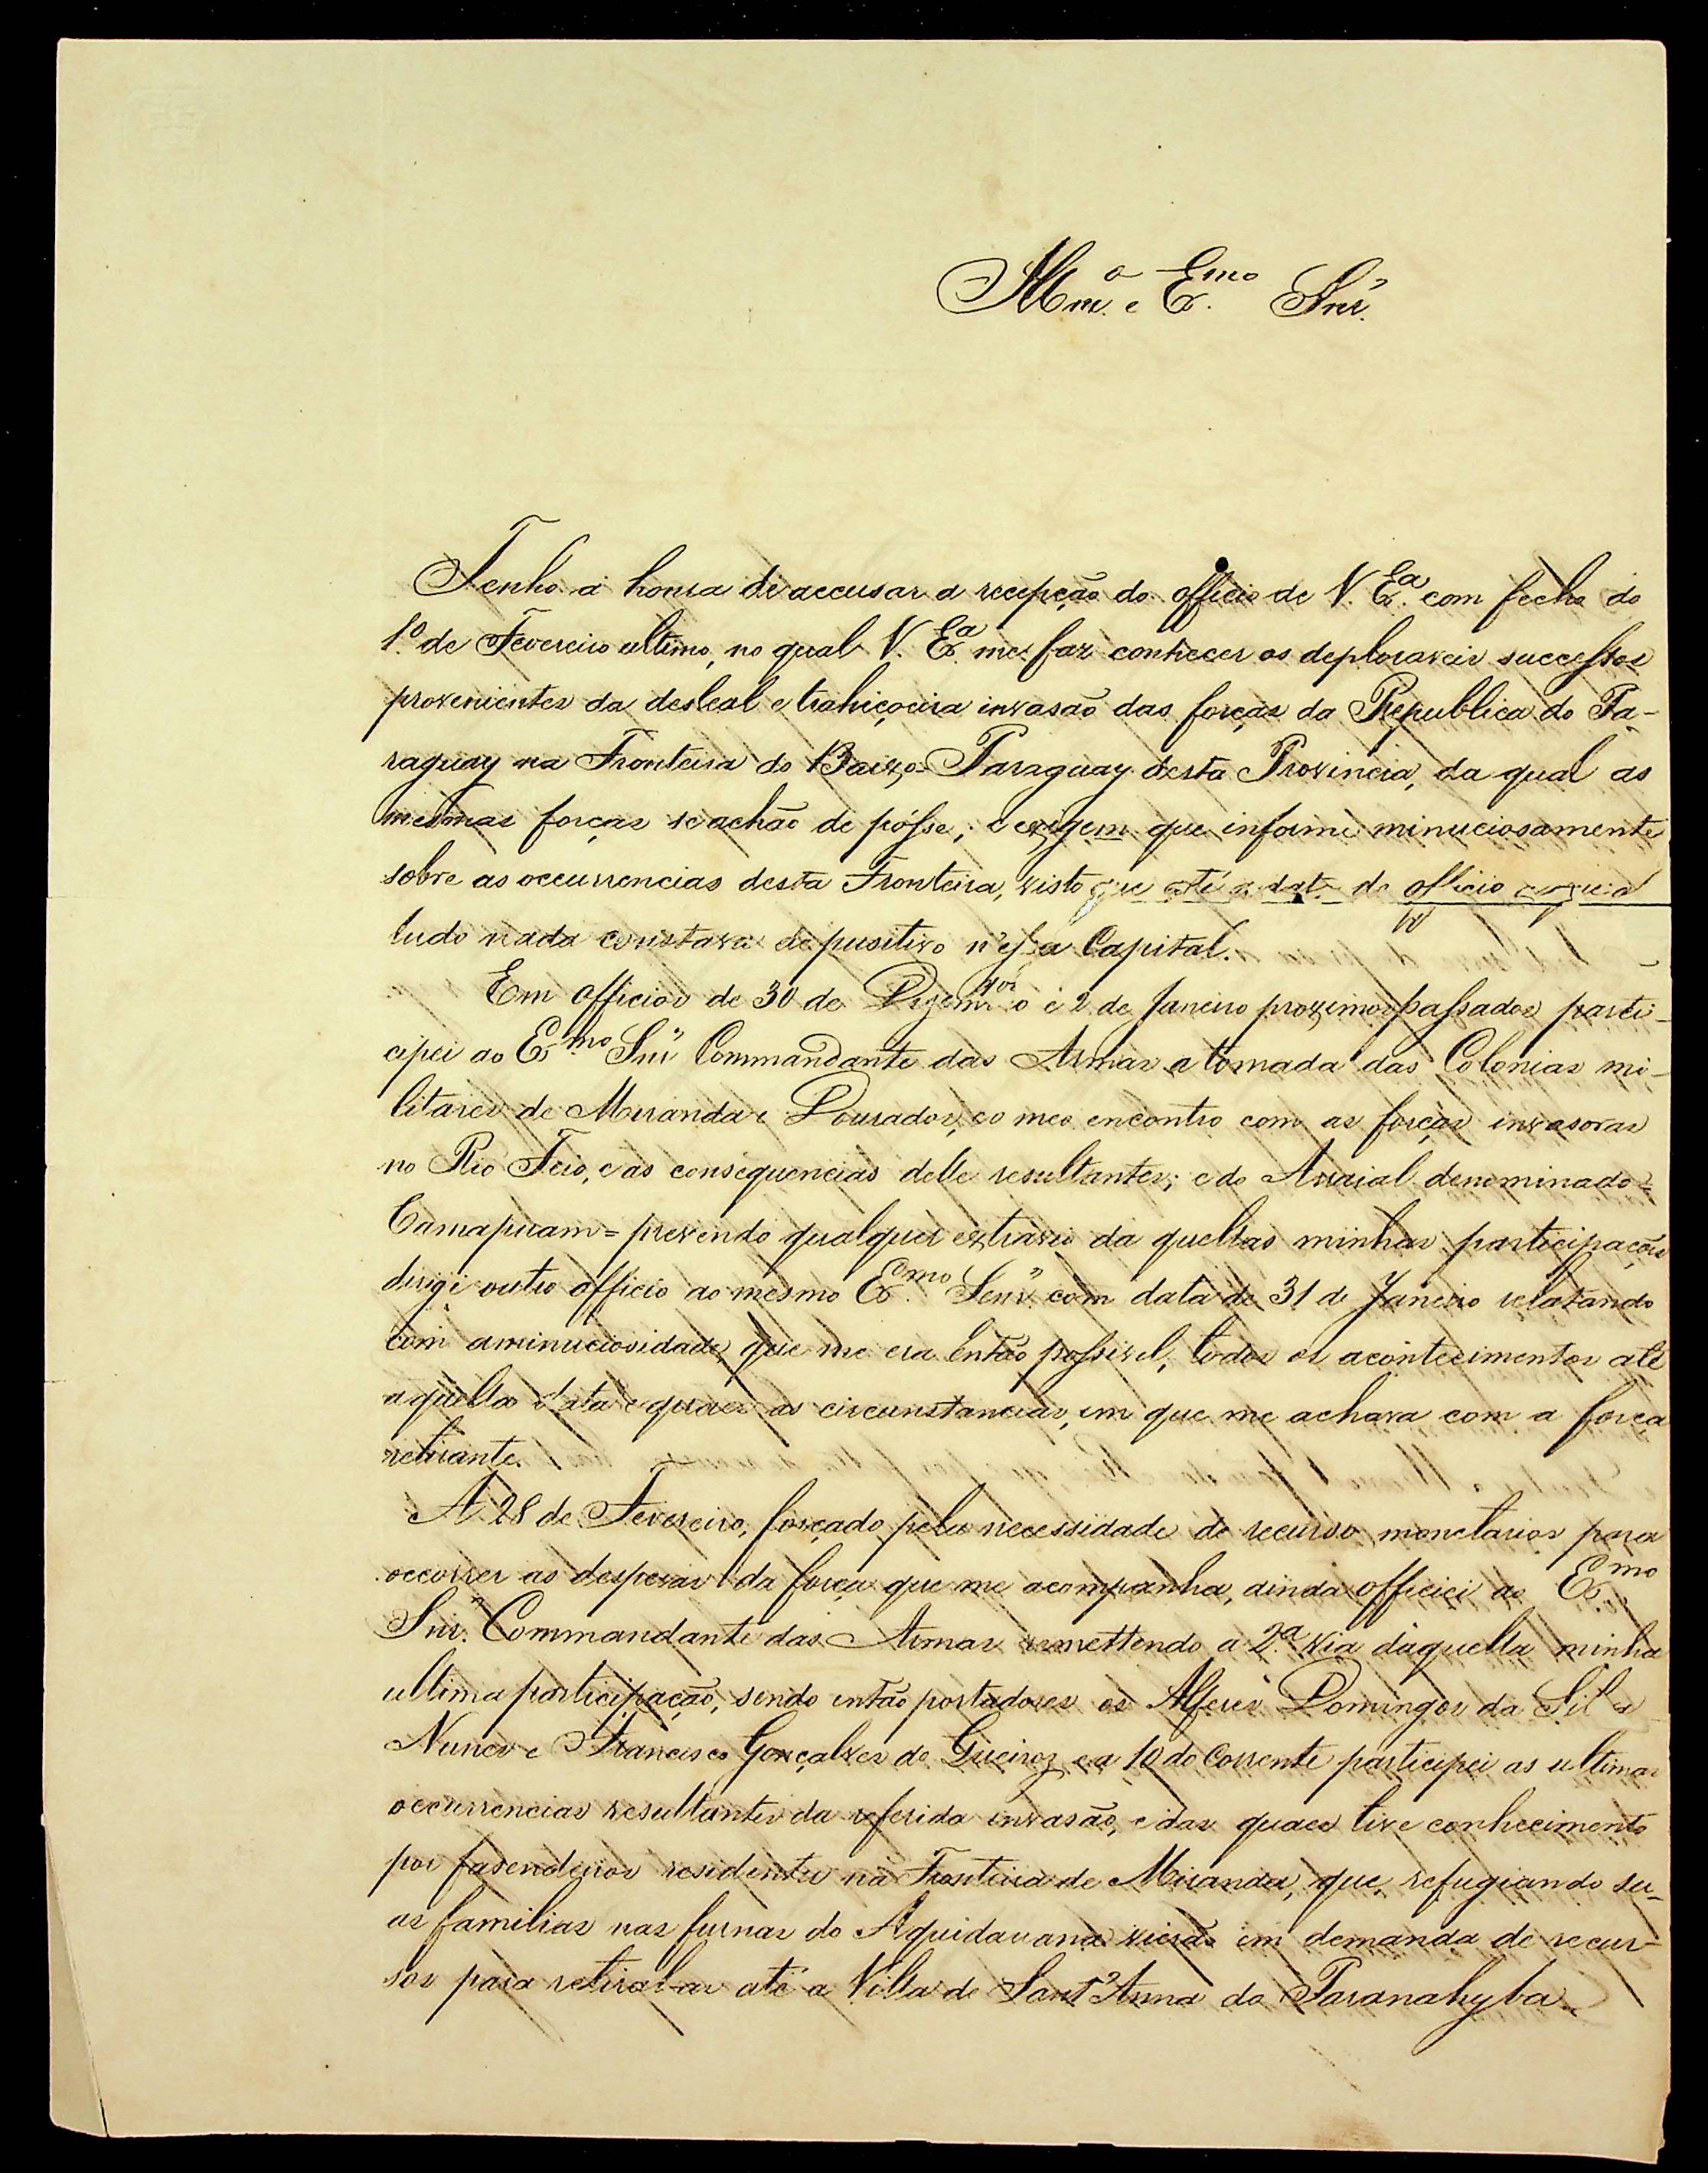 Illm.º e Ex.mo Snr.
Tenho a honra de accusar a recepção do officio de V. Ex.ª com fecho do
1.º de Fevereiro ultimo, no qual V. Ex.ª me faz conhecer os deploraveis successos
provenientes da desleal e trahiçoeira invasão das forças da Republica do Pa-
raguay na Fronteira do Baixo-Paraguay desta Provincia, da qual as
mesmas forças se achão de pósse; e exigem que informe minuciosamente
sobre as occurrencias desta Fronteira, visto que até a data do officio
tudo nada constava de positivo n'essa Capital.
Em officios de 30 de Dezembro e 2 de Janeiro proximos passados parti-
cipei ao Ex.mo Snr. Commandante das Armas a tomada das Colonias mi-
litares de Miranda e Dourados, e o meo encontro com as forças invasoras
no Rio Feio, e as consequencias delle resultantes; e do Arraial denominado =
Camapuam = prevendo qualquer extravio da quellas minhas participações
dirigi outro officio ao mesmo Ex.mo Senr. com data de 31 de Janeiro relatando
com a minuciosidade, que me era então possivel, todos os acontecimentos até
aquella data e quaes as circunstancias, em que me achava com a força
retirante.
A 28 de Fevereiro, forçado pela necessidade de recurso monetarios para
occorrer as despezas da força que me acompanha, ainda officiei ao Ex.mo
Snr. Commandante das Armas remettendo a 2.ª via daquella minha
ultima participação, sendo então portadores os Alferes Domingos da Sil a
Nunes e Francisco Gonçalves de Queiroz e a 10 do Corrente participei as ultimas
occurrencias resultantes da referida invasão, e das quaes tive conhecimento
por fasendeiros residentes na Fronteira de Miranda, que, refugiando su-
as familias nas furnas do Aquidauana vierão em demanda de recur-
sos para retiral-as até a Villa de Sant'Anna do Paranahyba.